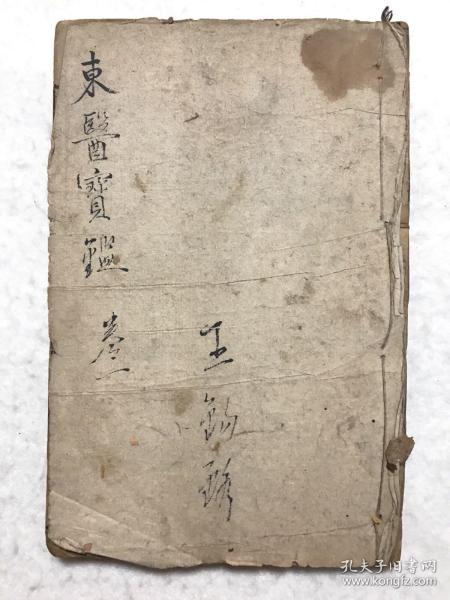 東醫寶鑑
卷一
王錫
孔夫子旧书网
www.kongfz.com